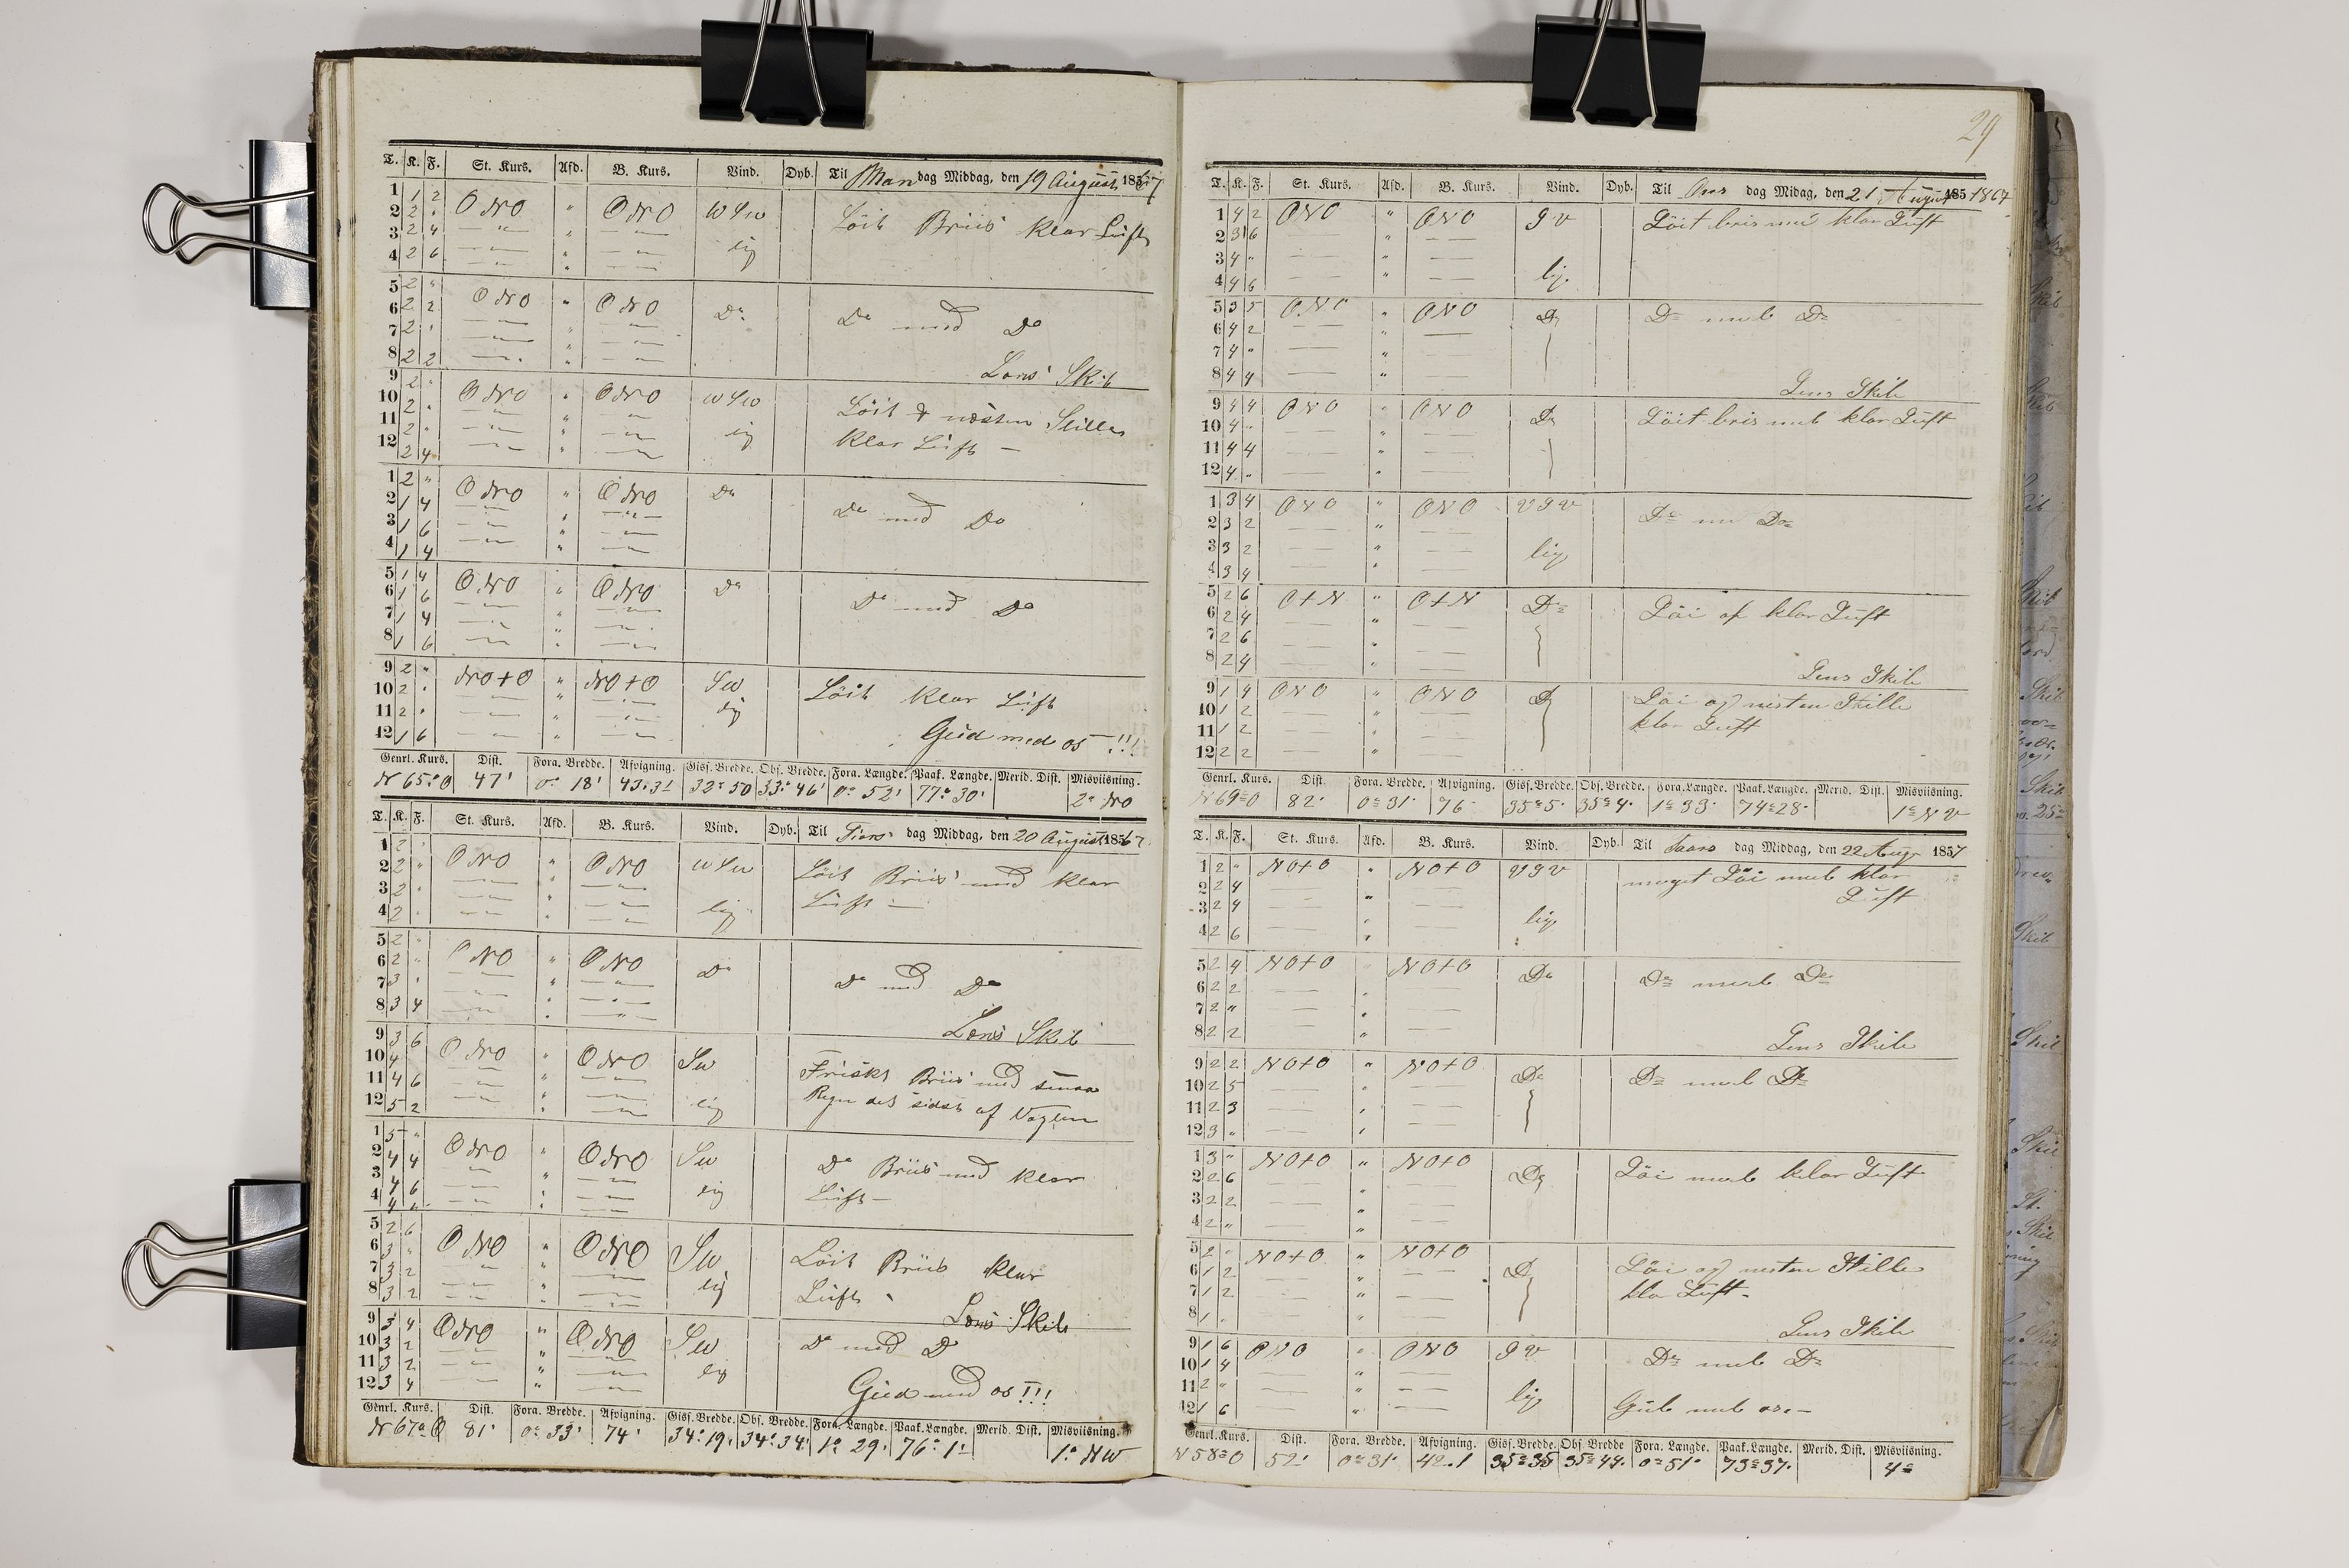 T. K. F. St. Kurs. Afd. B. Kurs. Vind. Dyb. Til Man dag Middag, den 19 August 1867
1 1 2 O NO " O NO W S W Löit Briis klar Luft
2 2 "
3 2 4
4 2 6 lig
5 2 "
6 2 2 O NO " O NO Do Do med Do
7 2 "
8 2 2 Lens Skib
9 2 "
10 2 " O NO " O NO W S W Löit & næsten Stille
11 2 " lig klar Luft —
12 2 4
1 2 " O NO " O NO Do
2 1 4 Do med Do
3 1 6
4 1 4
5 1 4 O NO " O NO Do
6 1 6 Do med Do
7 1 4
8 1 6
9 2 " NO+O " NO+O S W Löit klar Luft
10 2 "
11 2 " lig
12 1 6 Gud med os !!!
Genrl. Kurs. Dist. Fora. Bredde. Afvigning. Gisf. Bredde. Obs. Bredde. Fora. Længde. Paak. Længde. Merid. Dist. Misviisning.
N 65° O 47' 0° 18' 43.31 32° 50 33° 46' 0° 52' 77° 30' 2° NO
T. K. F. St. Kurs. Afd. B. Kurs. Vind. Dyb. Til Tiers dag Middag, den 20 August 1867
1 2 "
2 2 " O NO " O NO W S W Löit Briis med klar
3 2 " Luft —
4 2 " lig
5 2 "
6 2 " O NO " O NO Do
7 3 " Do med Do
8 3 4 Lens Skib
9 3 6
10 4 O NO " O NO S W Friskt Briis med smaa
11 4 6 Regn det sidst af Vagten
12 5 2 lig
1 5 "
2 4 4 O NO " O NO S W Do Briis med klar
3 4 6 Luft —
4 4 " lig
5 2 6
6 3 " O NO " O NO S W Löit Briis klar
7 3 2 Luft
8 3 2 lig Lens Skib
9 3 4 O NO " O NO S W Do med D
10 3 2
11 3 2 lig
12 3 4 Gud med os !!!
Genrl. Kurs. Dist. Fora. Bredde. Afvigning. Gisf. Bredde. Obs. Bredde. Fora. Længde. Paak. Længde. Merid. Dist. Misviisning.
N 67° O 81' 0° 33' 74' 34° 19' 34° 34' 1° 29' 76° 1' 1° NW
29
T. K. F. St. Kurs. Afd. B. Kurs. Vind. Dyb. Til Ons dag Midag, den 21 August 185 1867
1 4 2 O N O " O N O S V Löit bris med klar Luft
2 3 6
3 4 "
4 4 6 lig.
5 3 5 O N O " O N O Do Do med Do
6 4 2
7 4 "
8 4 4 Lens Skib
9 4 4 O N O " O N O Do Löit bris med klar Luft
10 4 "
11 4 4
12 4 "
1 3 4 O N O " O N O V S V Do med Do
2 3 2
3 3 2 lig
4 3 4
5 2 6 O + N " O + N Do Löi af klar Luft
6 2 4
7 2 6
8 2 4 Lens Skib
9 1 4 O N O " O N O Do Löi og nesten Stille
10 1 2 klar Luft
11 1 2
12 2 2
Genrl. Kurs. Dist. Fora. Bredde. Afvigning. Gisf. Bredde. Obs. Bredde. Fora. Længde. Paak. Længde. Merid. Dist. Misviisning.
N 69° O 82' 0° 31' 76 35° 5' 35° 4' 1° 33' 74° 28' 1° N V
T. K. F. St. Kurs. Afd. B. Kurs. Vind. Dyb. Til Taars dag Middag, den 22 Aug 1857
1 2 " NO+O " NO+O V S V meget Löi med klar
2 2 4 Luft
3 2 4 lig
4 2 6
5 2 4 NO+O NO+O Do Do med Do
6 2 2
7 2 "
8 2 2 Lens Skib
9 2 2 NO+O " NO+O Do Do med Do
10 2 5
11 2 3
12 3 "
1 3 " NO+O " NO+O Do Löi med klar Luft
2 2 6
3 2 2
4 2 "
5 2 " NO+O " NO+O Do Löi og nesten Stille
6 1 2 klar Luft.
7 1 2
8 1 " Lens Skib
9 1 6 O N O " O N O S V Do med Do
10 1 4
11 2 " lig Gud med os. —
12 1 6
Genrl. Kurs. Dist. Fora. Bredde. Afvigning. Gisf. Bredde. Obs. Bredde Fora. Længde. Paak. Længde. Merid. Dist. Misviisning.
N 58° O 52' 0° 31' 42.1 35° 35 35° 44' 0° 51' 73° 37' 4°